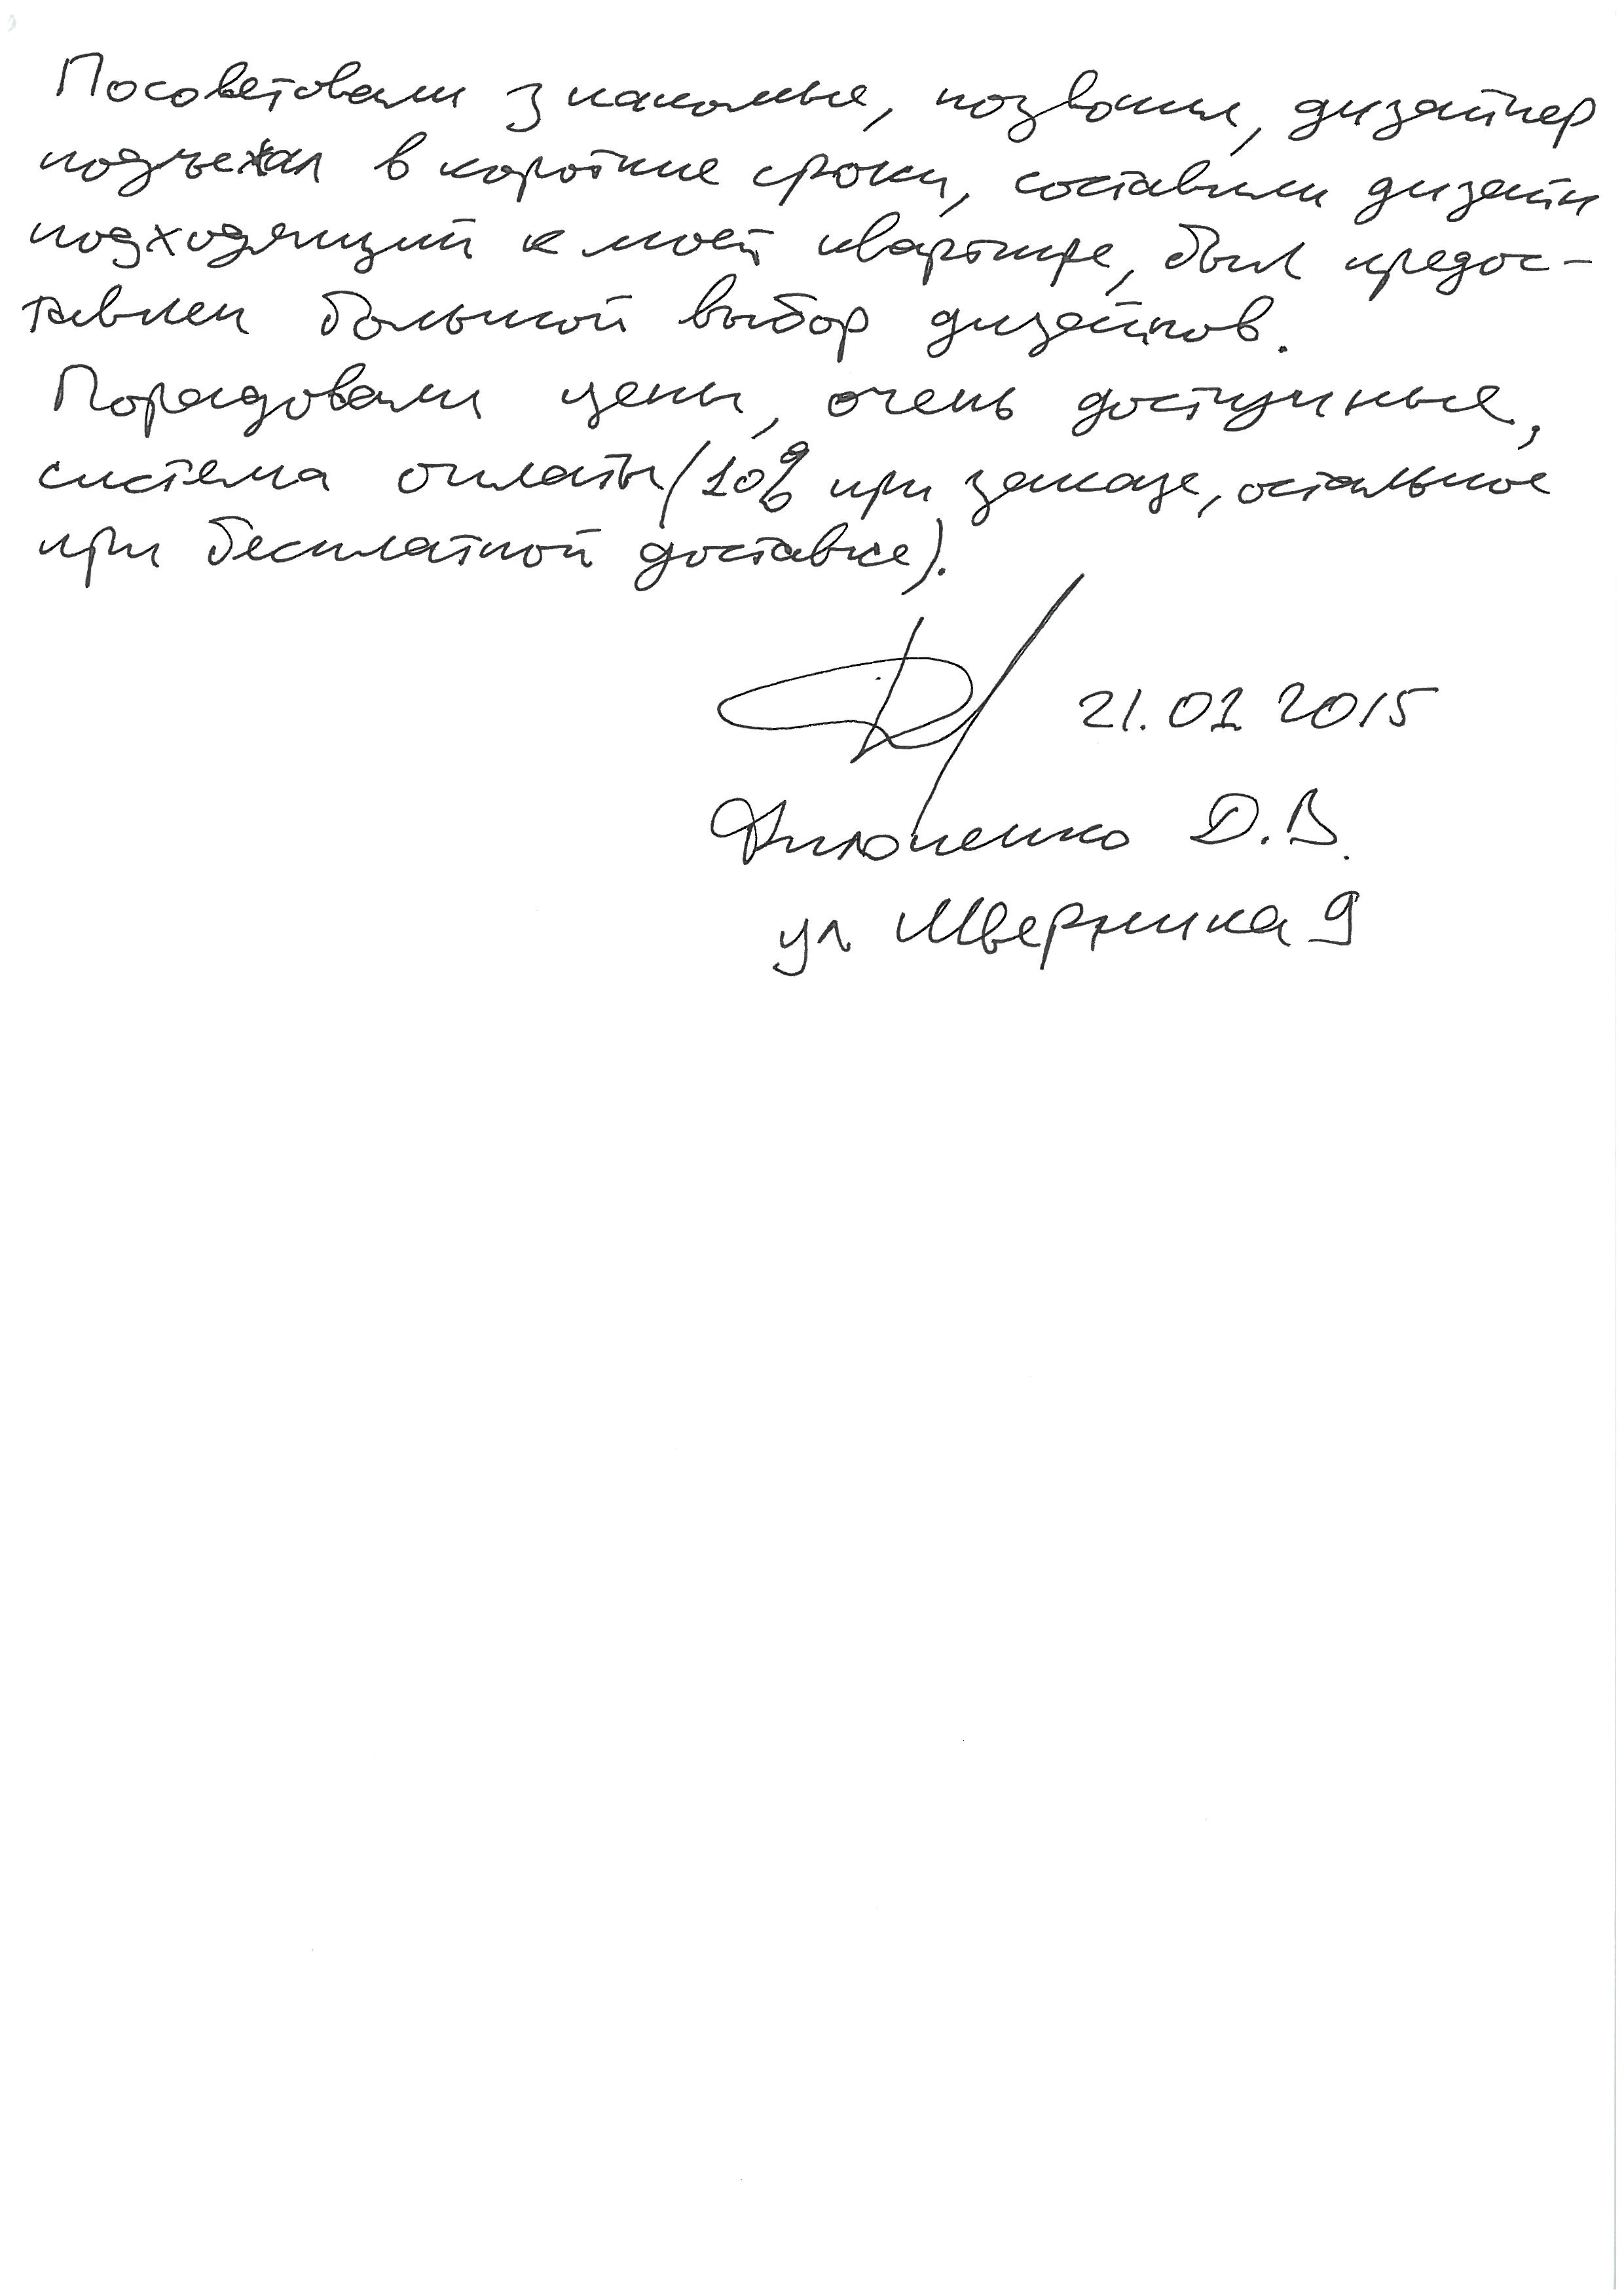 Посоветовали знакомые, позвонил, дизайнер
подъехал в короткие сроки, составили дизайн
подходящий к моей квартире, был предос-
тавлен большой выбор дизайнов.
Порадовали цены, очень доступные,
система оплаты (10% при заказе, остальное
при бесплатной доставке).
21.01 2015
Филоненко Д.В.
ул Шверника 9